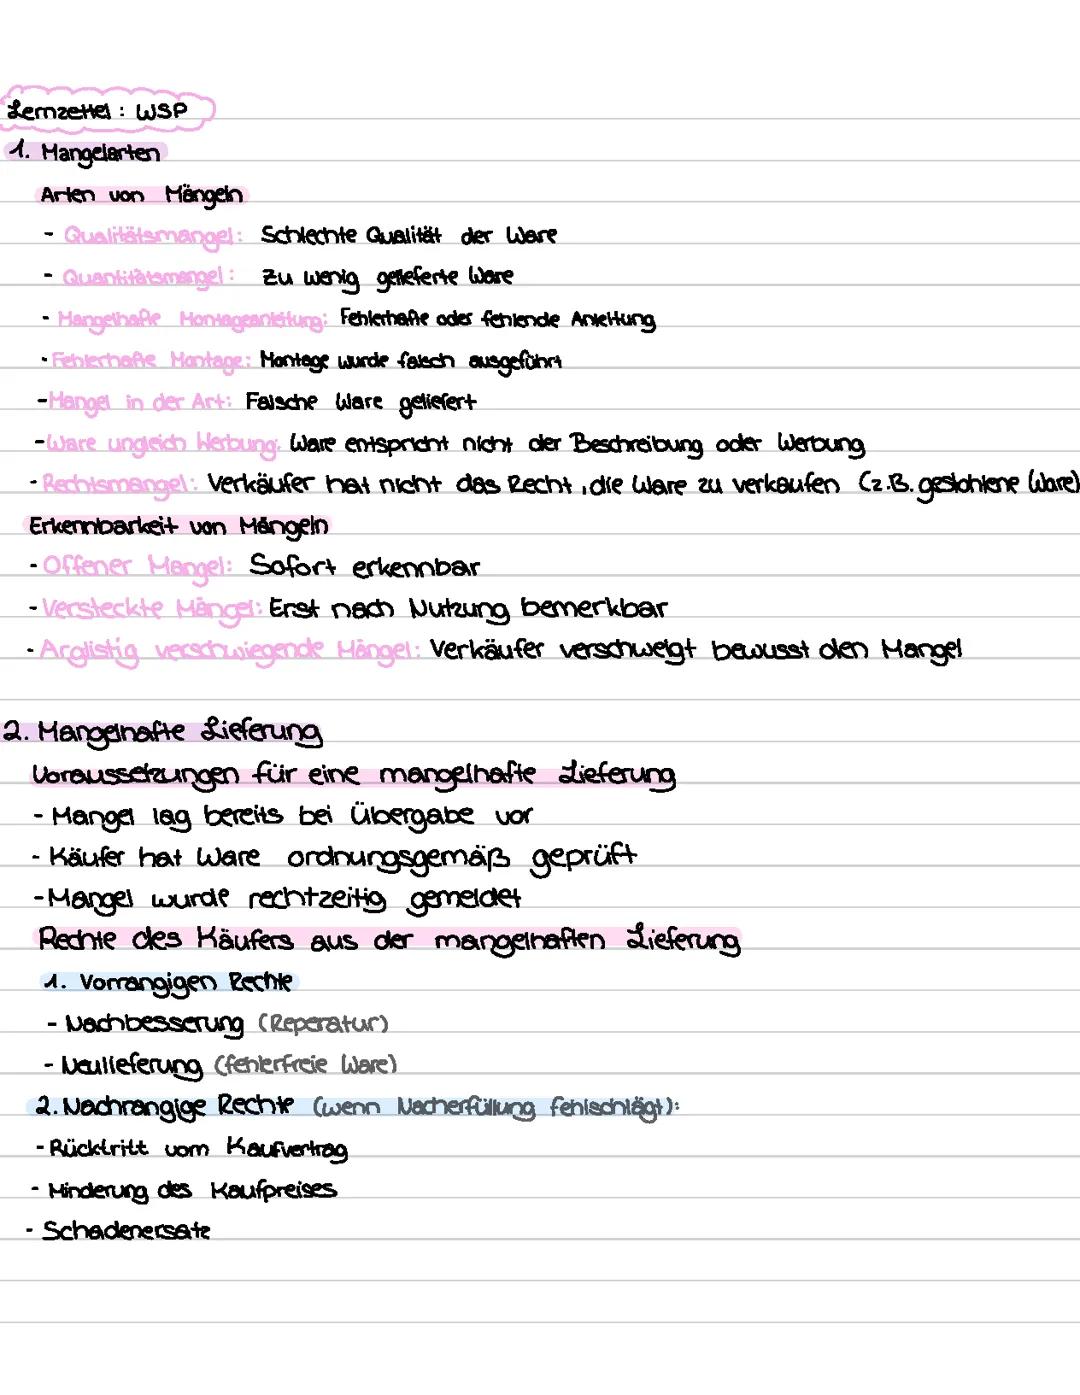 Lernzettel : WSP
1. Mangelarten
Arten von Mängeln
- Qualitätsmangel: Schlechte Qualität der Ware
- Quantitätsmangel: Zu wenig gelieferte Ware
- Mangelhafte Montageanleitung: Fehlerhafte oder fehlende Anleitung
- Fehlerhafte Montage: Montage wurde falsch ausgeführt
- Mangel in der Art: Falsche Ware geliefert
- Ware ungleich Werbung: Ware entspricht nicht der Beschreibung oder Werbung
- Rechtsmangel: Verkäufer hat nicht das Recht, die Ware zu verkaufen (z.B. gestohlene Ware)
Erkennbarkeit von Mängeln
- Offener Mangel: Sofort erkennbar
- Versteckte Mängel: Erst nach Nutzung bemerkbar
- Arglistig verschwiegende Mängel: Verkäufer verschweigt bewusst den Mangel
2. Mangelhafte Lieferung
Voraussetzungen für eine mangelhafte Lieferung
- Mangel lag bereits bei Übergabe vor
- Käufer hat Ware ordnungsgemäß geprüft
- Mangel wurde rechtzeitig gemeldet
Rechte des Käufers aus der mangelhaften Lieferung
1. Vorrangigen Rechte
- Nachbesserung (Reperatur)
- Neulieferung (fehlerfreie Ware)
2. Nachrangige Rechte (wenn Nacherfüllung fehlschlägt):
- Rücktritt vom Kaufvertrag
- Minderung des Kaufpreises
- Schadenersatz